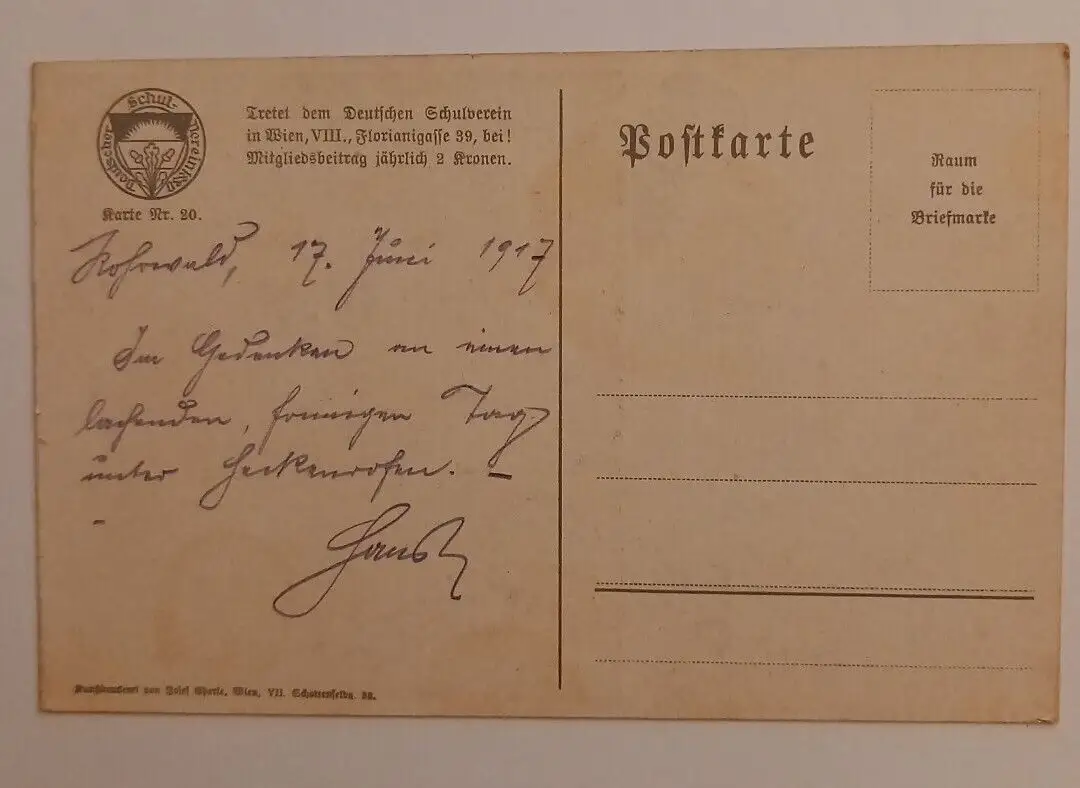 Deutscher Schul-Verein 1880
Tretet dem Deutschen Schulverein
in Wien, VIII., Florianigasse 39, bei!
Mitgliedsbeitrag jährlich 2 Kronen.
Karte Nr. 20.
Rohrwald, 17. Juni 1917
Im Gedenken an einen
lachenden, sonnigen Tag
unter Heckenrosen. –
Hans
Kunstdruckerei von Josef Eberle, Wien, VII. Schottenfeldg. 38.
Postkarte
Raum
für die
Briefmarke